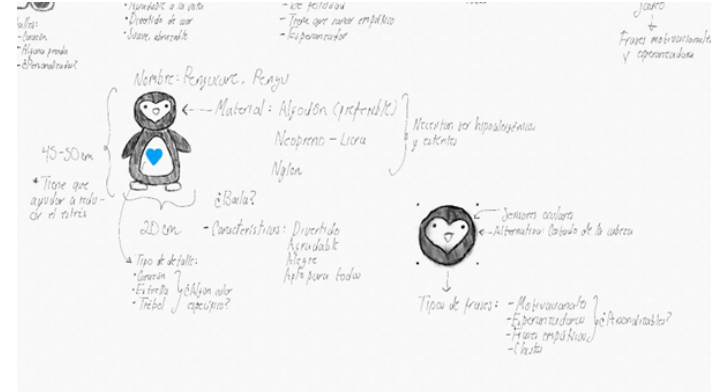 · Agradable a la vista
· Divertido de usar
· Suave, abrazable
- Dé felicidad
- Tiene que sonar empático
- Esperanzador
Frases motivacionales
y esperanzadoras
- Corazón
· Alguna prenda
- ¿Personalizados?
Nombre: Pengucare, Pengu
Material: Algodón (preferible)
Neopreno - Licra
Nylon
Necesitan ser hipoalergénicos
y
45-50 cm
* Tiene que
ayudar a redu-
cir el estrés
20 cm
¿Baila?
- Características: Divertido
Agradable
Alegre
Apto para todos
Tipo de detalle:
· Corazón
· Estrella
· Trébol
¿Algún color
específico?
Sensores oculares
Alternativa: Costado de la cabeza
Tipos de frases: - Motivacionales
- Esperanzadoras
- Frases empáticas
- Chistes
¿Personalizables?